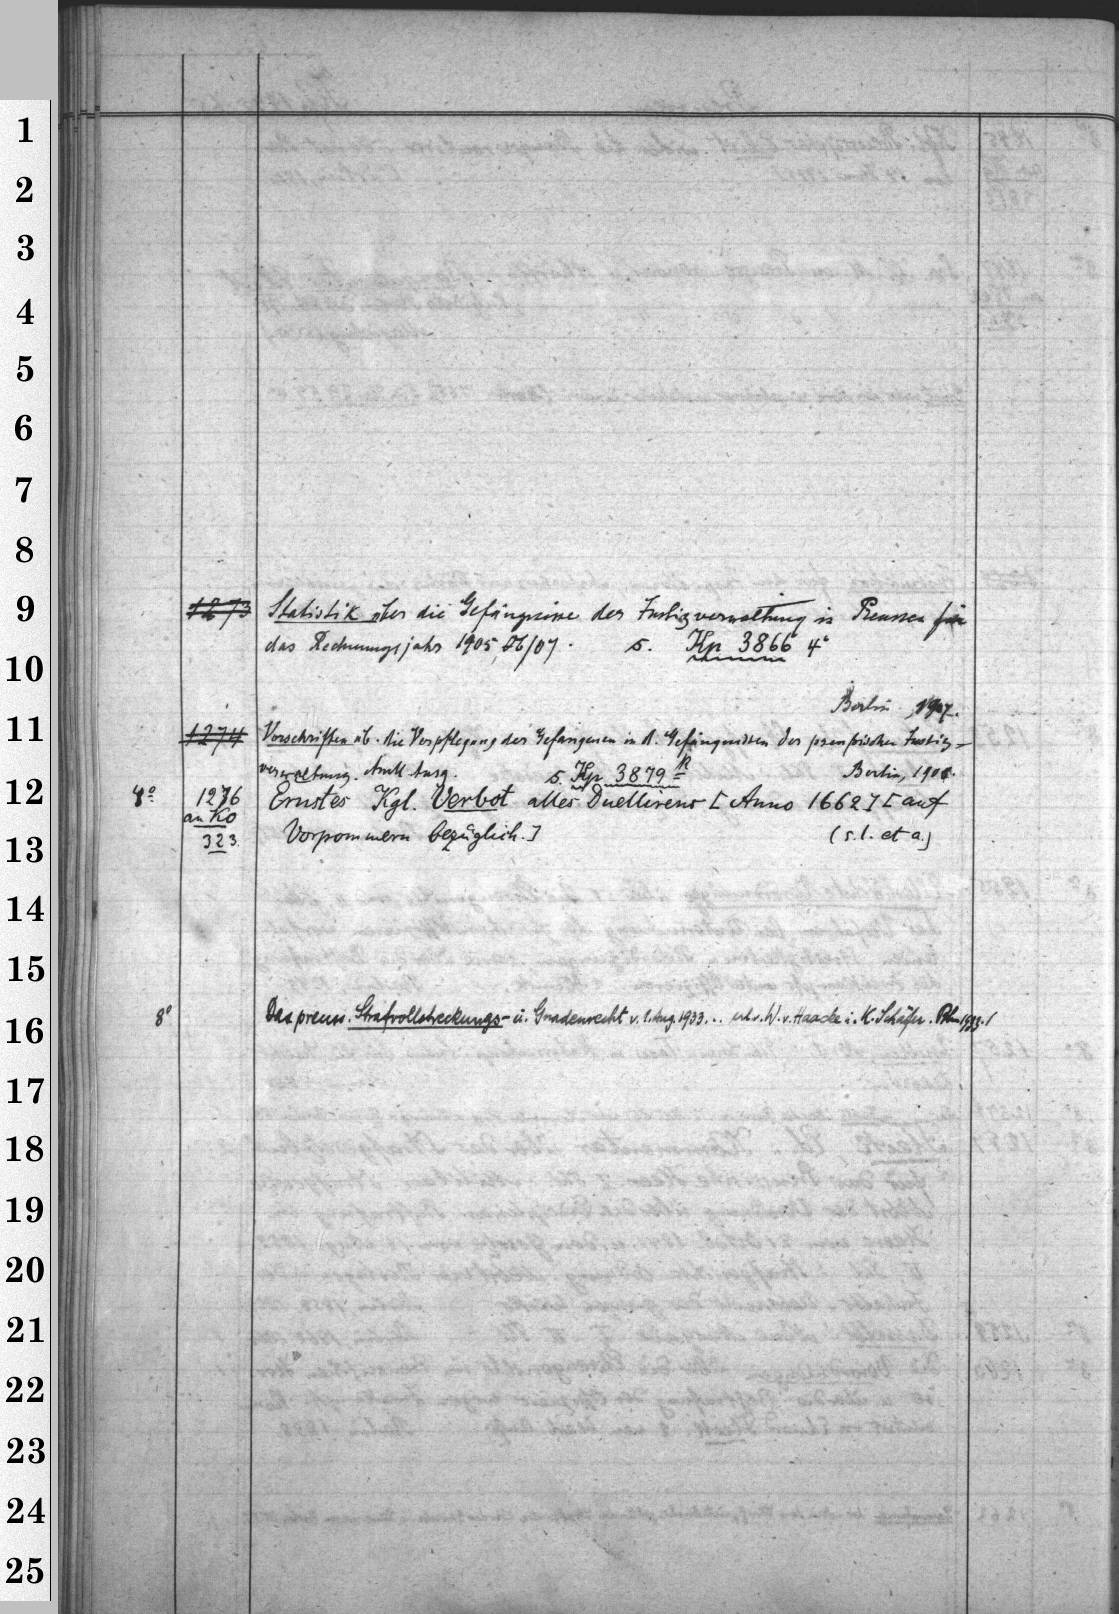 1
2
3
4
5
6
7
8
9 1273 Statistik über die Gefängnisse der Justizverwaltung in Preussen für
das Rechnungsjahr 1905, 06/07. s. Kp 3866 4°
10
Berlin 1907.
11 1274 Vorschriften üb. die Verpflegung der Gefangenen in d. Gefängnissen der preußischen Justiz-
verwaltung. Amtl. Ausg. s. Kp 3879 R Berlin, 1906.
12 4° 1276 Ernstes Kgl. Verbot alles Duellirens [Anno 1662] [auf
an Ko
13 323 Vorpommern bezüglich.] (s.l. et a.)
14
15
16 8° Das preuss. Strafvollstreckungs- u. Gnadenrecht v. 1. Aug. 1933... erl. v. W. v. Haacke i. K. Schäfer. Bln 1933. /
17
18
19
20
21
22
23
24
25